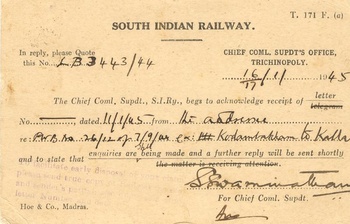 T. 171 F. (a)
SOUTH INDIAN RAILWAY.
In reply, please Quote
this No. LB3443/44
CHIEF COML. SUPDT'S OFFICE,
TRICHINOPOLY.
16/1/1945
17
The Chief Coml. Supdt., S.I.Ry., begs to acknowledge receipt of letter
telegram
No. dated 11/1/45 from the address
re 26/12 of 7/9/44 ex Kodambakkam to
and to state that enquiries are being made and a further reply will be sent shortly
the matter is receiving attention.
For Chief Coml. Supdt.
Hoe & Co., Madras.